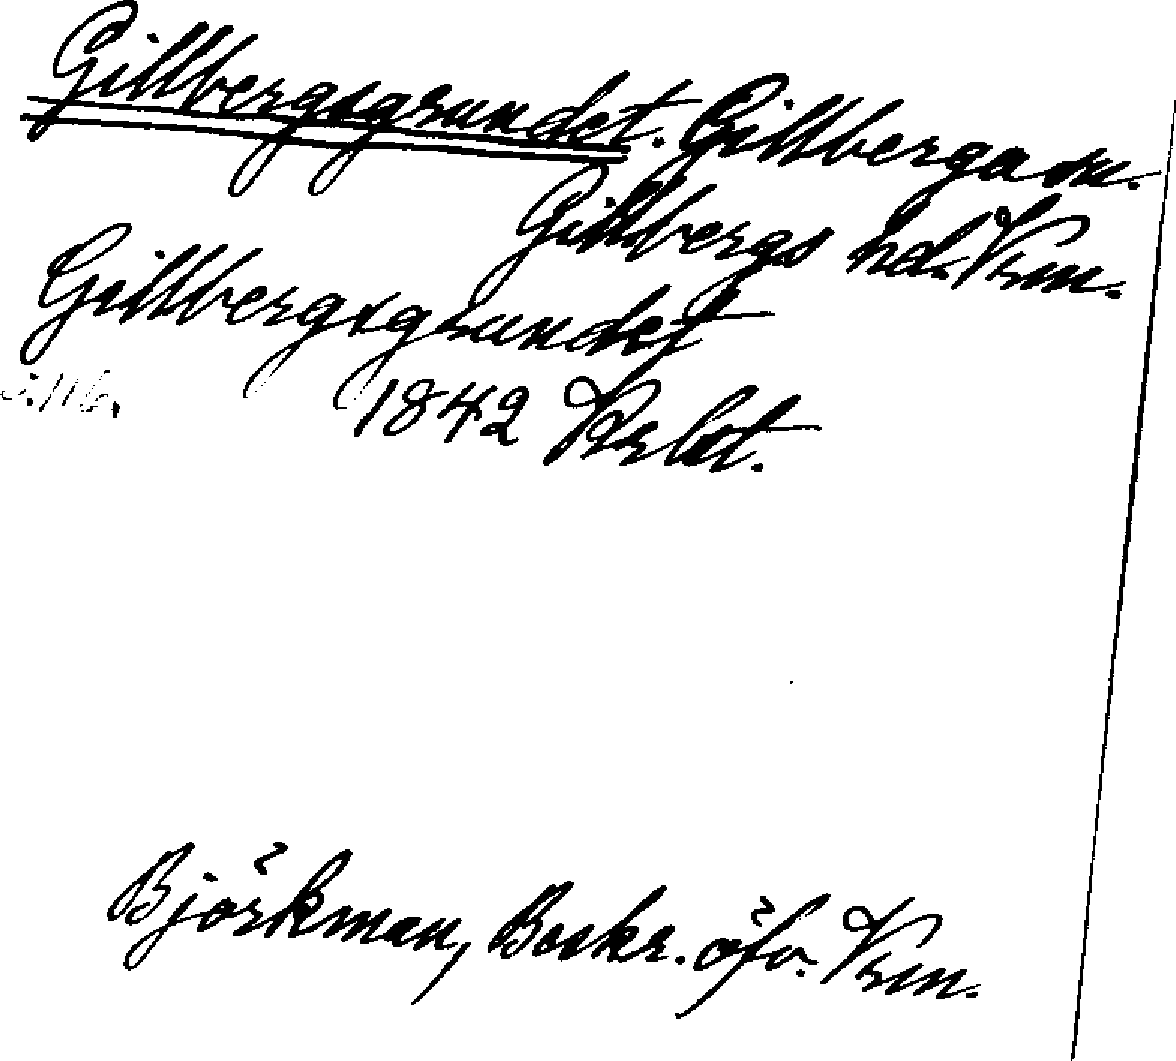 Gillbergsgrundet. Gillberga sn.
Gillbergs hd. Vrm.
Gillbergsgrundet
1842 Krbl.
Björkman, Beskr. öfv. Vrm.